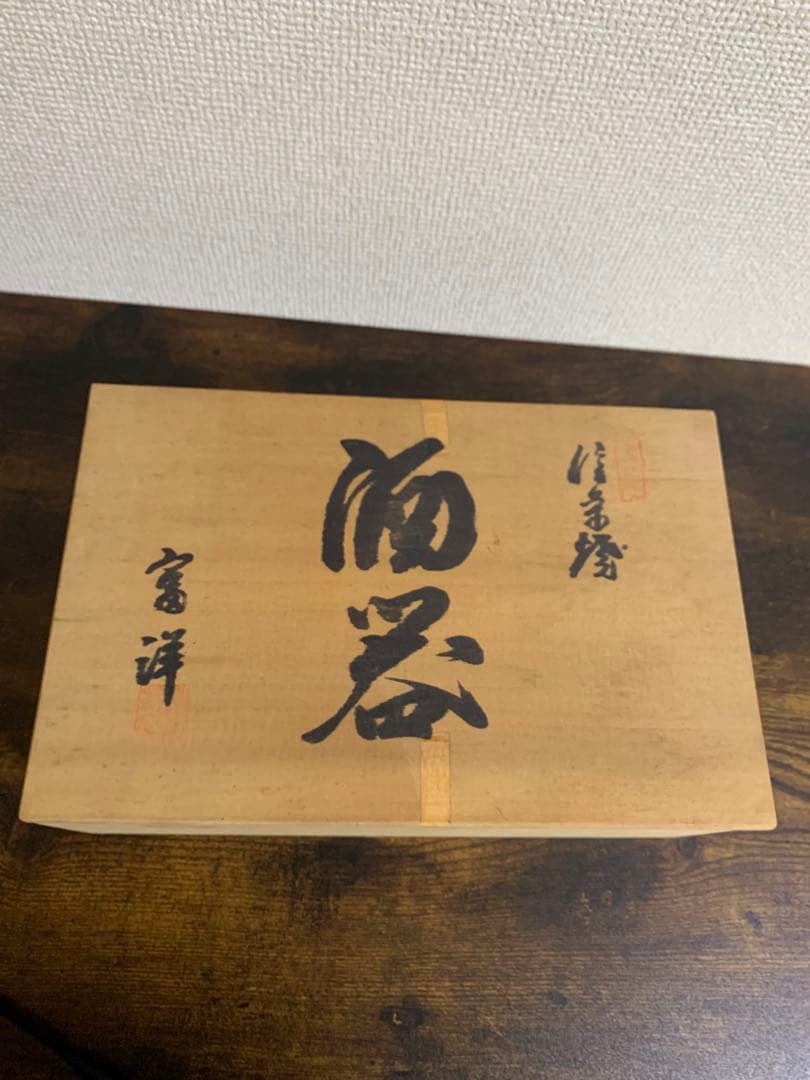 信楽焼
酒器
富洋